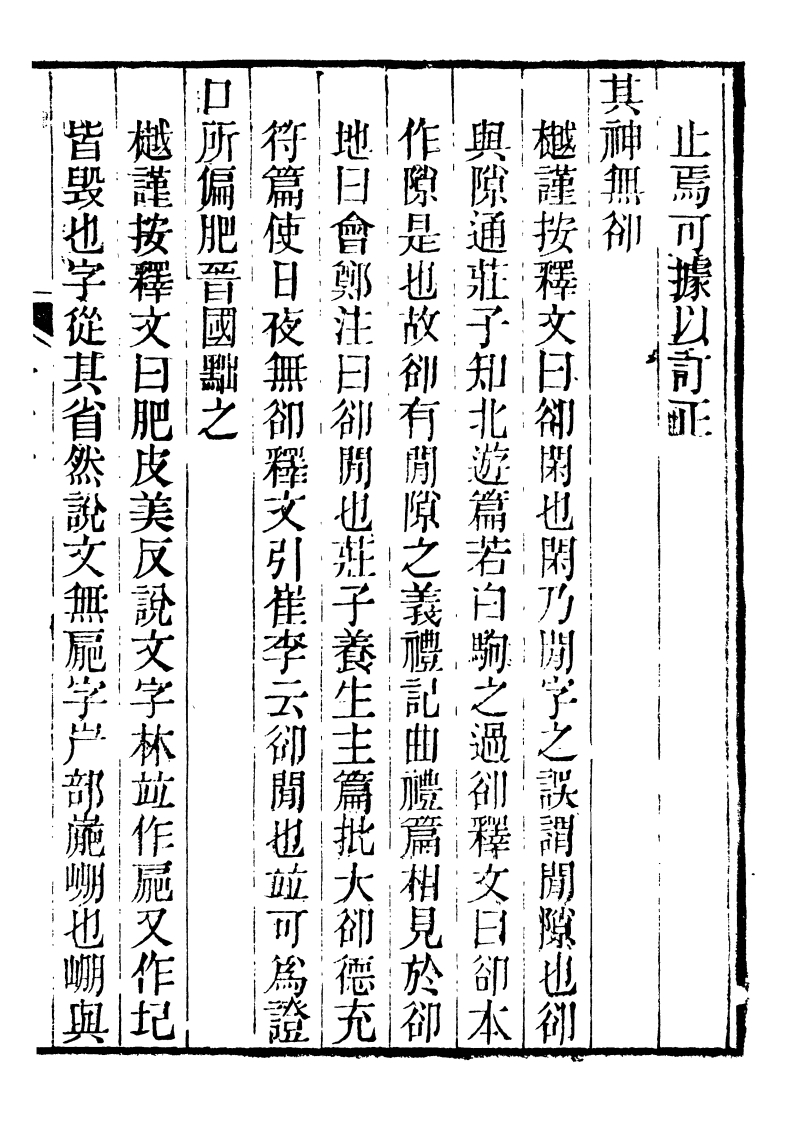 止焉可據以訂正
其神無卻
樾謹按釋文曰卻閑也閑乃閒字之誤謂閒隙也卻
與隙通莊子知北遊篇若白駒之過卻釋文曰卻本
作隙是也故卻有閒隙之義禮記曲禮篇相見於卻
地曰會鄭注曰卻閒也莊子養生主篇批大卻德充
符篇使日夜無卻釋文引崔李云卻閒也竝可爲證
口所偏肥晉國黜之
樾謹按釋文曰肥皮美反說文字林竝作𡱂又作圮
皆毀也字從其省然說文無𡱂字屵部嶏崩也崩與